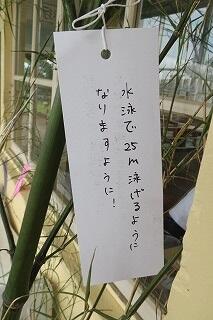 水泳で25m泳げるように
なりますように!